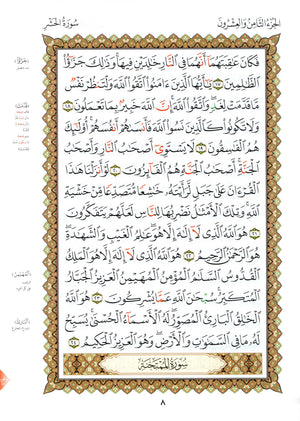 الجزء الثامن والعشرون
سورة الحشر
فَكَانَ عَٰقِبَتَهُمَآ أَنَّهُمَا فِى ٱلنَّارِ خَٰلِدَيْنِ فِيهَا ۚ وَذَٰلِكَ جَزَٰٓؤُا۟
ٱلظَّٰلِمِينَ ١٧ يَٰٓأَيُّهَا ٱلَّذِينَ ءَامَنُوا۟ ٱتَّقُوا۟ ٱللَّهَ وَلْتَنظُرْ نَفْسٌ
مَّا قَدَّمَتْ لِغَدٍ ۖ وَٱتَّقُوا۟ ٱللَّهَ ۚ إِنَّ ٱللَّهَ خَبِيرٌۢ بِمَا تَعْمَلُونَ ١٨
وَلَا تَكُونُوا۟ كَٱلَّذِينَ نَسُوا۟ ٱللَّهَ فَأَنسَىٰهُمْ أَنفُسَهُمْ ۚ أُو۟لَٰٓئِكَ
هُمُ ٱلْفَٰسِقُونَ ١٩ لَا يَسْتَوِىٓ أَصْحَٰبُ ٱلنَّارِ وَأَصْحَٰبُ
ٱلْجَنَّةِ ۚ أَصْحَٰبُ ٱلْجَنَّةِ هُمُ ٱلْفَآئِزُونَ ٢٠ لَوْ أَنزَلْنَا هَٰذَا
ٱلْقُرْءَانَ عَلَىٰ جَبَلٍ لَّرَأَيْتَهُۥ خَٰشِعًا مُّتَصَدِّعًا مِّنْ خَشْيَةِ
ٱللَّهِ ۚ وَتِلْكَ ٱلْأَمْثَٰلُ نَضْرِبُهَا لِلنَّاسِ لَعَلَّهُمْ يَتَفَكَّرُونَ
٢١ هُوَ ٱللَّهُ ٱلَّذِى لَآ إِلَٰهَ إِلَّا هُوَ ۖ عَٰلِمُ ٱلْغَيْبِ وَٱلشَّهَٰدَةِ ۖ
هُوَ ٱلرَّحْمَٰنُ ٱلرَّحِيمُ ٢٢ هُوَ ٱللَّهُ ٱلَّذِى لَآ إِلَٰهَ إِلَّا هُوَ ٱلْمَلِكُ
ٱلْقُدُّوسُ ٱلسَّلَٰمُ ٱلْمُؤْمِنُ ٱلْمُهَيْمِنُ ٱلْعَزِيزُ ٱلْجَبَّارُ
ٱلْمُتَكَبِّرُ ۚ سُبْحَٰنَ ٱللَّهِ عَمَّا يُشْرِكُونَ ٢٣ هُوَ ٱللَّهُ
ٱلْخَٰلِقُ ٱلْبَارِئُ ٱلْمُصَوِّرُ ۖ لَهُ ٱلْأَسْمَآءُ ٱلْحُسْنَىٰ ۚ يُسَبِّحُ
لَهُۥ مَا فِى ٱلسَّمَٰوَٰتِ وَٱلْأَرْضِ ۖ وَهُوَ ٱلْعَزِيزُ ٱلْحَكِيمُ ٢٤
سورة الممتحنة
٨